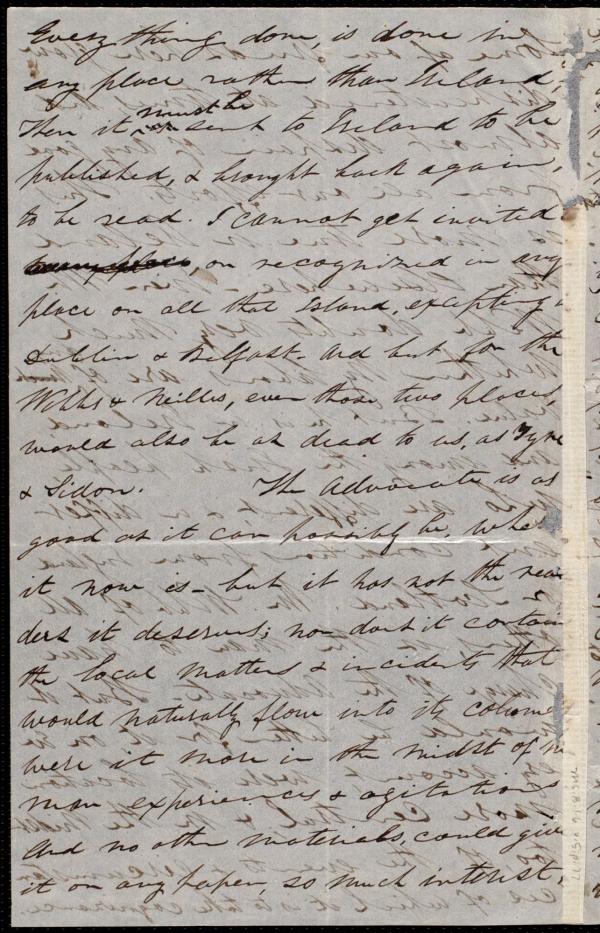 Every thing done, is done in
any place rather than Ireland;
Then it must be sent to Ireland to be
published, & brought back again,
to be read. I cannot get invited
, or recognized in any
place on all that Island, excepting
Dublin & Belfast- and but for the
Webbs & Neills, even those two places,
would also be as dead to us, as Tyre
& Sidon. The Advocate is as
good as it can possibly be, whe
it now is- but it has not the rea
ders it deserves; nor does it contain
the local matters & incidents that
would naturally flow into its colum
were it more in the midst of
man experiences & agitations
And no other materials, could give
it or any paper, so much interest,